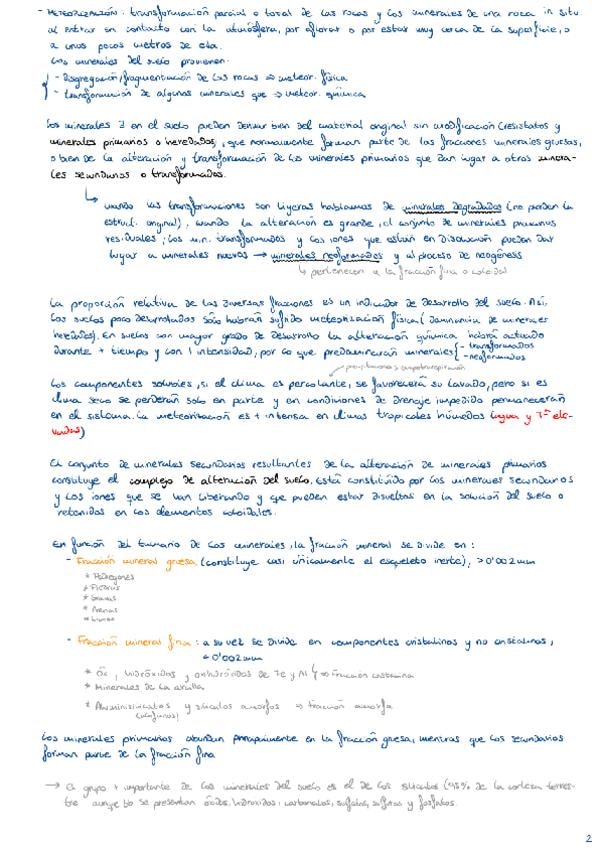 - METEORIZACIÓN: transformación parcial o total de las rocas y los minerales de una roca in situ
al entrar en contacto con la atmósfera, por aflorar o por estar muy cerca de la superficie, o
a unos pocos metros de ella.
Los minerales del suelo provienen:
- Disgregación/fragmentación de las rocas ⇒ meteor. física
- transformación de algunos minerales que ⇒ meteor. química
Los minerales ∃ en el suelo pueden derivar bien del material original sin modificación (resistatos y
minerales primarios o heredados), que normalmente forman parte de las fracciones minerales gruesas,
o bien de la alteración y transformación de los minerales primarios que dan lugar a otros minera-
les secundarios o transformados.
cuando las transformaciones son ligeras hablamos de minerales degradados (no pierden la
estruct. original), cuando la alteración es grande, el conjunto de minerales primarios
residuales; los min. transformados y los iones que están en disolución pueden dar
lugar a minerales nuevos → minerales neoformados y al proceso de neogénesis
↳ pertenecen a la fracción fina o coloidal
La proporción relativa de las diversas fracciones es un indicador de desarrollo del suelo. Así,
los suelos poco desarrollados solo habrán sufrido meteorización física (dominancia de minerales
heredados). En suelos con mayor grado de desarrollo la alteración química habrá actuado
durante + tiempo y con ↑ intensidad, por lo que predominarán minerales { - transformados
- neoformados
precipitaciones > evapotranspiración
Los componentes solubles, si el clima es percolante, se favorecerá su lavado, pero si es
clima seco se perderán solo en parte y en condiciones de drenaje impedido permanecerán
en el sistema. La meteorización es + intensa en climas tropicales húmedos (agua y Tª ele-
vadas)
El conjunto de minerales secundarios resultantes de la alteración de minerales primarios
constituye el complejo de alteración del suelo. Está constituido por los minerales secundarios
y los iones que se van liberando y que pueden estar disueltos en la solución del suelo o
retenidos en los elementos coloidales.
En función del tamaño de los minerales, la fracción mineral se divide en:
- Fracción mineral gruesa (constituye casi únicamente el esqueleto inerte), > 0'002 mm
* Pedregones
* Piedras
* Gravas
* Arenas
* Limos
- Fracción mineral fina: a su vez se divide en componentes cristalinos y no cristalinos,
< 0'002 mm
* Óx, hidróxidos y oxihidróxidos de Fe y Al } ⇒ Fracción cristalina
* Minerales de la arcilla
* Aluminosilicatos y silicatos amorfos ⇒ fracción amorfa
Los minerales primarios abundan principalmente en la fracción gruesa, mientras que los secundarios
forman parte de la fracción fina
→ El grupo + importante de los minerales del suelo es el de los silicatos (95% de la corteza terres-
tre aunque tb se presentan óxidos, hidróxidos, carbonatos, sulfatos, sulfuros y fosfatos.
2